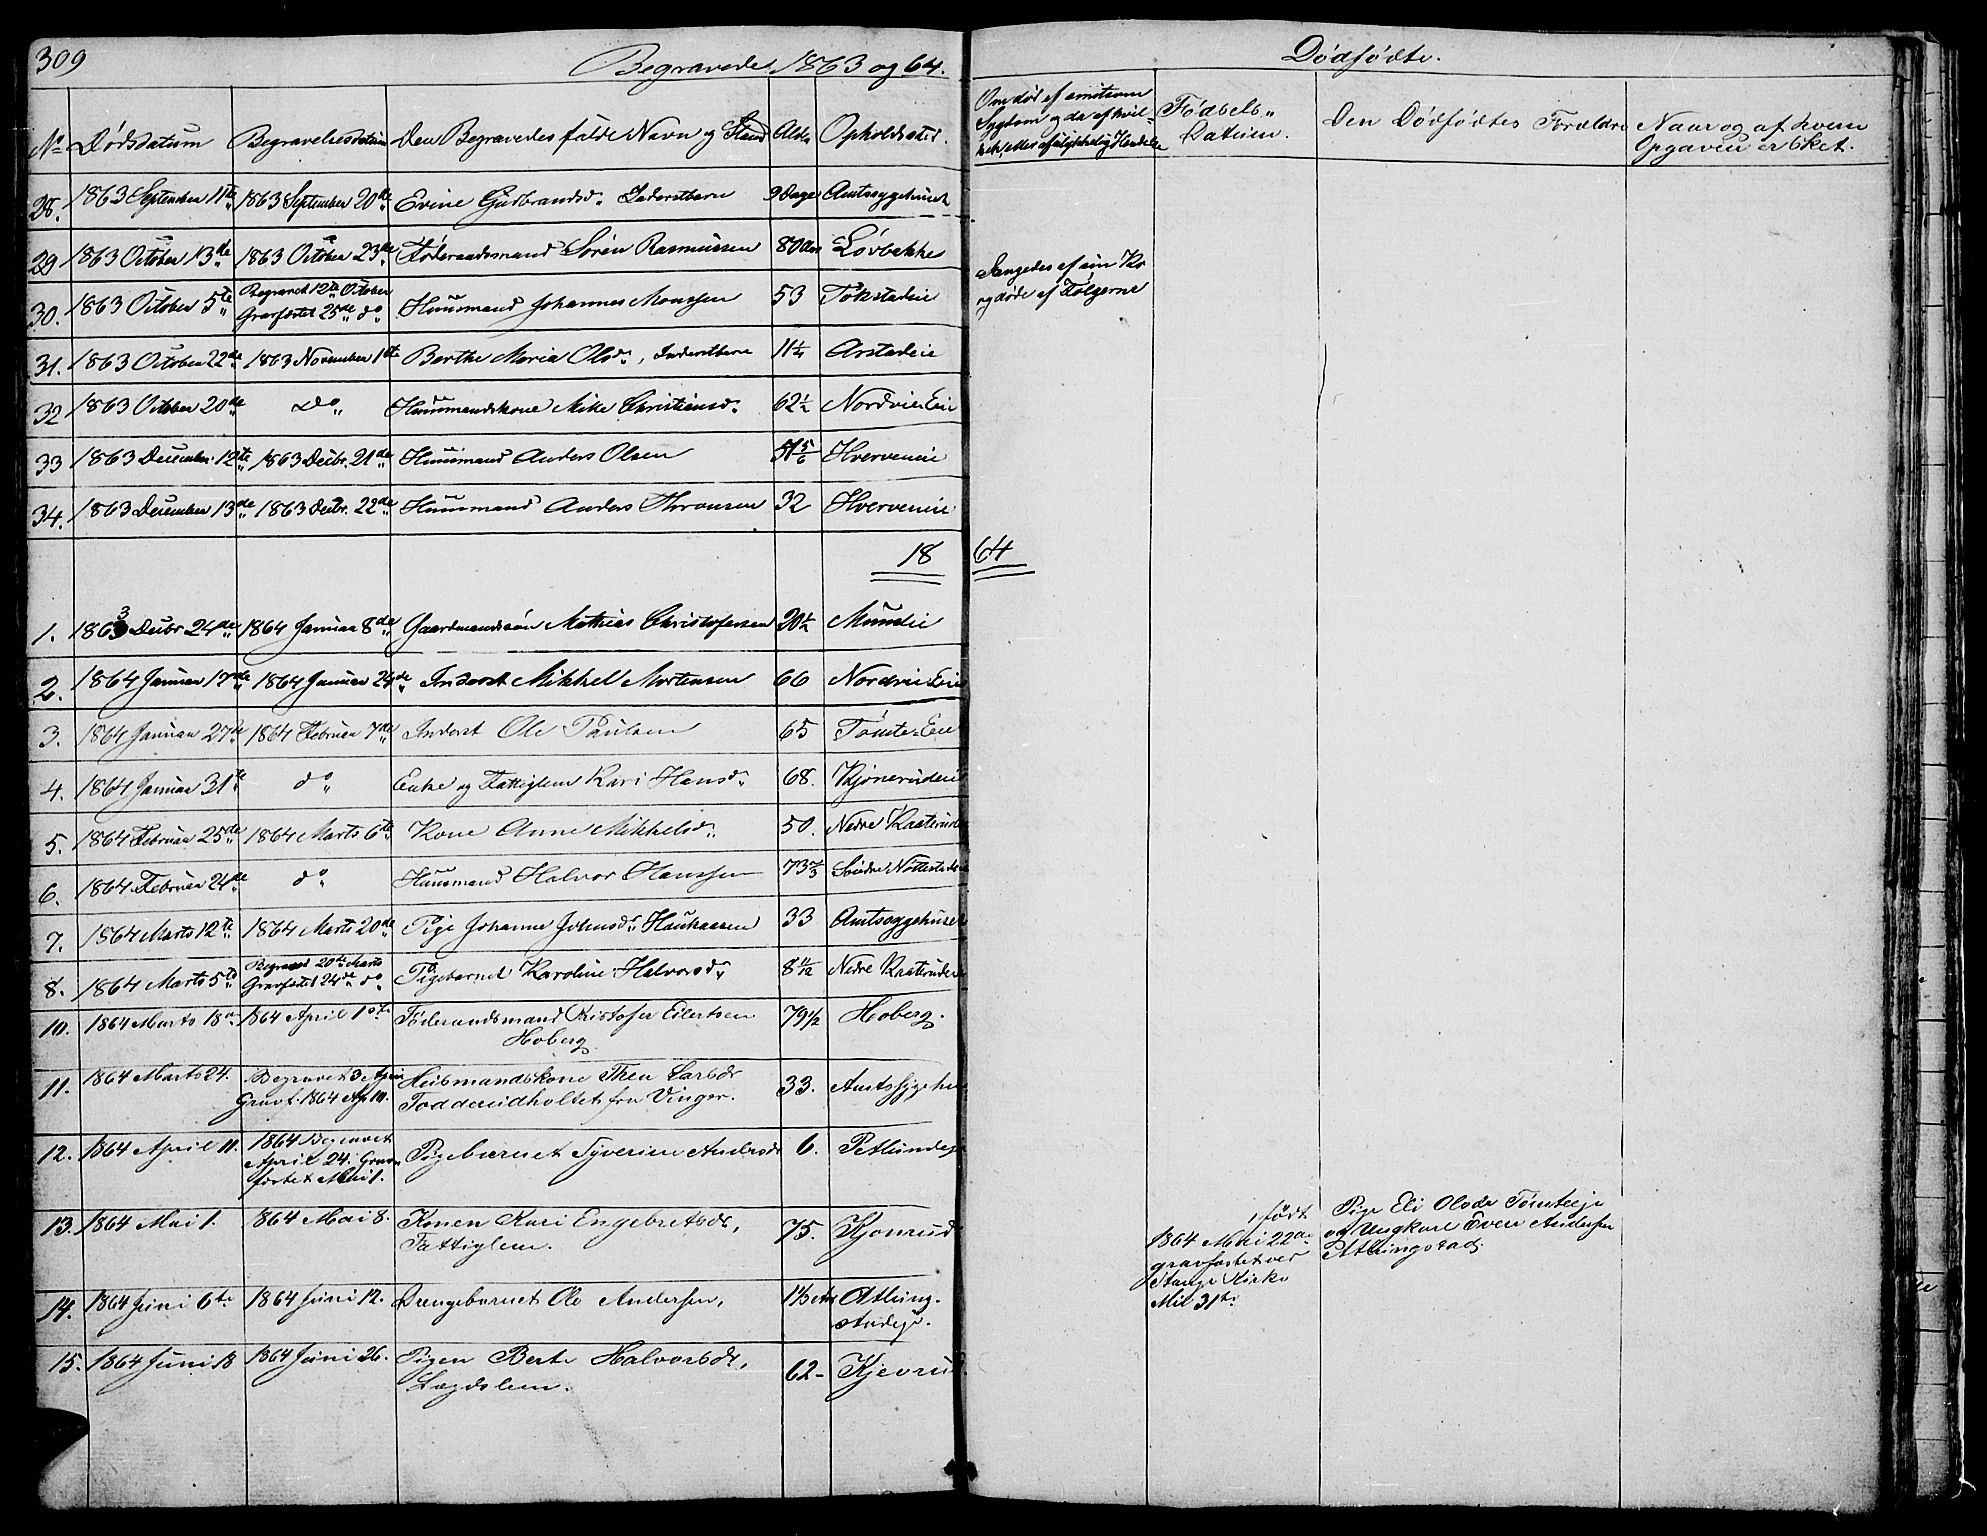 309
Begravede 1863 og 64.
Dødfødte.
No Dødsdatum Begravelsesdatum Den Begravedes fulde Navn og Stand Alder Opholdssted.
Om død af smitsom
Sygdom og da af hvil-
ken, eller af ulykkelig Hændelse
Fødsels-
Datum.
Den Dødfødtes Forældre
Naar og af hvem
Opgaven er sket.
28. 1863 September 11te 1863 September 20de Evine Gudbrandsd. Inderstbarn 9 Dage Amtssygehuset
29 1863 October 13de 1863 October 23de Føderaadsmand Søren Rasmussen 80 Aar Løvbekke
30. 1863 October 5te Begravet 12te October
Gravfæstet 25de do Huusmand Johannes Monssen 53 Tokstadeie
Stangedes af ein Ko
og døde af Følgerne
31. 1863 October 22de 1863 November 1ste Berthe Maria Olsd., Inderstbarn 11¼ Arstadeie
32 1863 October 20de do Huusmandskone Mike Christiansd. 62½ Nordvie Eie
33 1863 December 12te 1863 Decbr. 21de Huusmand Anders Olsen 51 5/6 Hverveneie
34. 1863 December 13de 1863 Decbr. 22de Huusmand Anders Thronsen 32 Hverveneie
18 64
1. 1863 Decbr 24de 1864 Januar 8de Gaardmandssøn Mathias Christofersen 20½
2. 1864 Januar 17de 1864 Januar 24de Inderst Mikkel Mortensen 66 Nordvie Eie
3. 1864 Januar 27de 1864 Februar 7de Inderst Ole Paulsen 65 Tomte-Eie
4. 1864 Januar 31te do Enke og Fattiglem Kari Hansd. 68. Kjønerudeie
5. 1864 Februar 25de 1864 Marts 6te Kone Anne Mikkelsd. 50. Nedre Kaaterud
6. 1864 Februar 24de do Huusmand Halvor Hanssen 73⅔ Søndre Nøttestad
7. 1864 Marts 12te 1864 Marts 20de Pige Johanne Johnsd. Hauchaasen 33 Amtssygehuset
8. 1864 Marts 5te Begravet 20de Marts
Gravfæstet 24de do Pigebarnet Karoline Halvorsd. 8 11/12 Nedre Kaaterud
10. 1864 Marts 18de 1864 April 1ste Føderaadsmand Kristofer Eilertsen
Hoberg 79½ Hoberg.
11. 1864 Marts 24. Begravet 3 April
Gravf. 1864 Ap 10. Husmandskone Thea Larsdr
Todderudholtet fra Vinger. 33. Amtssygehu
12. 1864 April 11. 1864 Begravet
April 24. Grav-
fæstet Mai 1. Pigebarnet Syverine Andersdr 6.
13. 1864 Mai 1. 1864 Mai 8. Konen Kari Engebretsdr,
Fattiglem. 75. Kjonrud
født
1864 Mai 22de
gravfæstet ved
Stange Kirke
Mai 31te
Pige Eli Olsdr Tomteeje
og Ungkarl Even Andersen
Atlungstad.
14. 1864 Juni 6te 1864 Juni 12. Drengebarnet Ole Andersen, Atlung-
stadeje.
15. 1864 Juni 18 1864 Juni 26. Pigen Berte Halvorsdr,
Lægdslem. 62- Kjevrud